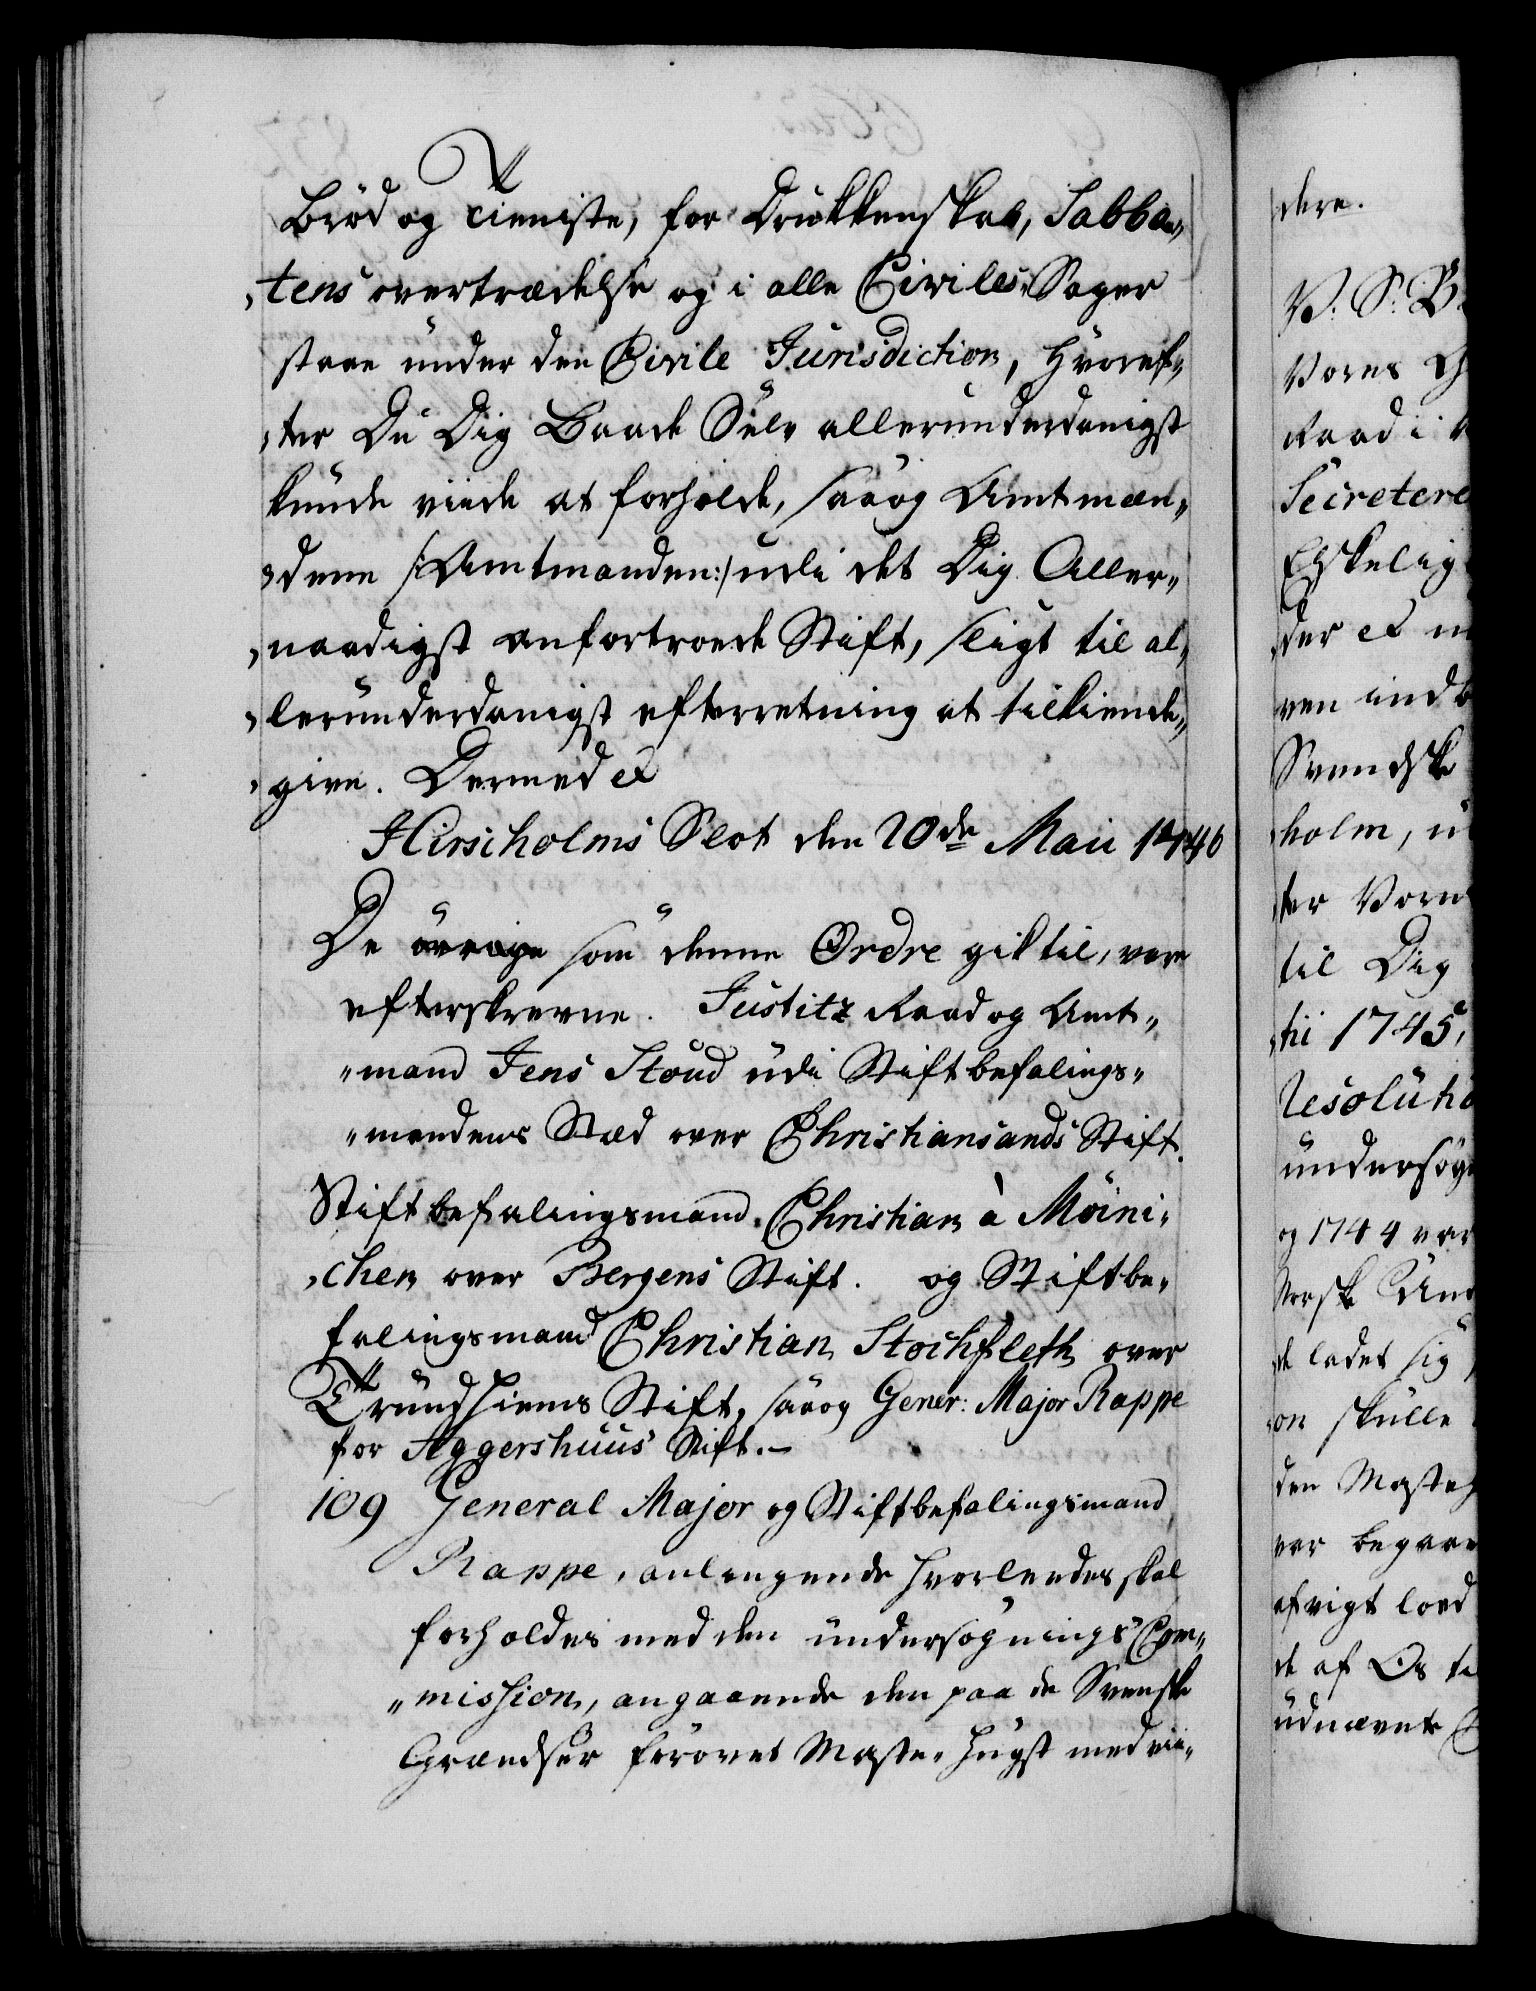 Bröd og Tieniste, for Drukkenskab, Sabba„
„tens overtrædelse og i alle Civiles Sager
staae under den Civile Jurisdiction, hvoref„
„ter Du Dig Baade Selv allerunderdanigst
kunde viide at forholde, saa og Amtmæn„
„dene /:Amtmanden:/ udi det Dig Aller„
„naadigst anfortroede Stift, sligt til al„
„lerunderdanigst efterretning at tilkiende„
„give. Dermed &
Hirscholms Slot den 20de Maii 1746
De övrige som denne Ordre gik til, vare
efterskrevne. Justitz Raad og Amt„
„mand Jens Stoud udi Stiftbefalings„
„mandens Stæd over Christiansands Stift.
Stiftbefalingsmand Christian à Möini„
„chen over Bergens Stift. og Stiftbe„
falingsmand Christian Stochfleth over
Trundhiems Stift, saa og Gener: Major Rappe
for Aggershuus Stift.—
109 General Major og Stiftbefalingsmand
Rappe, anlangende hvorleedes skal
forholdes med den undersøgnings Com„
„mission, angaaende den paa de Svenske
Grændser forøvet Maste-Hugst med vii„
dere.
V. S. B.
Vores
Raad i
Secretere
Elskelig
der &
ven ind
Svendske
holm, u
ter Vores
til Dig
tii 1745,
Resolutio
undersøg
og 1744 var
Norsk
de ladet sig
on skulle
den Maste
var begaae
afvigt
de af Os
udnævnte